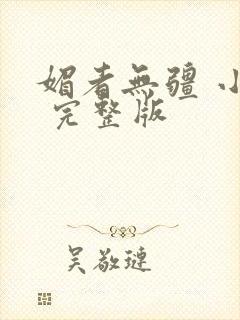 媚者無疆 小
完整版
吴敬琏